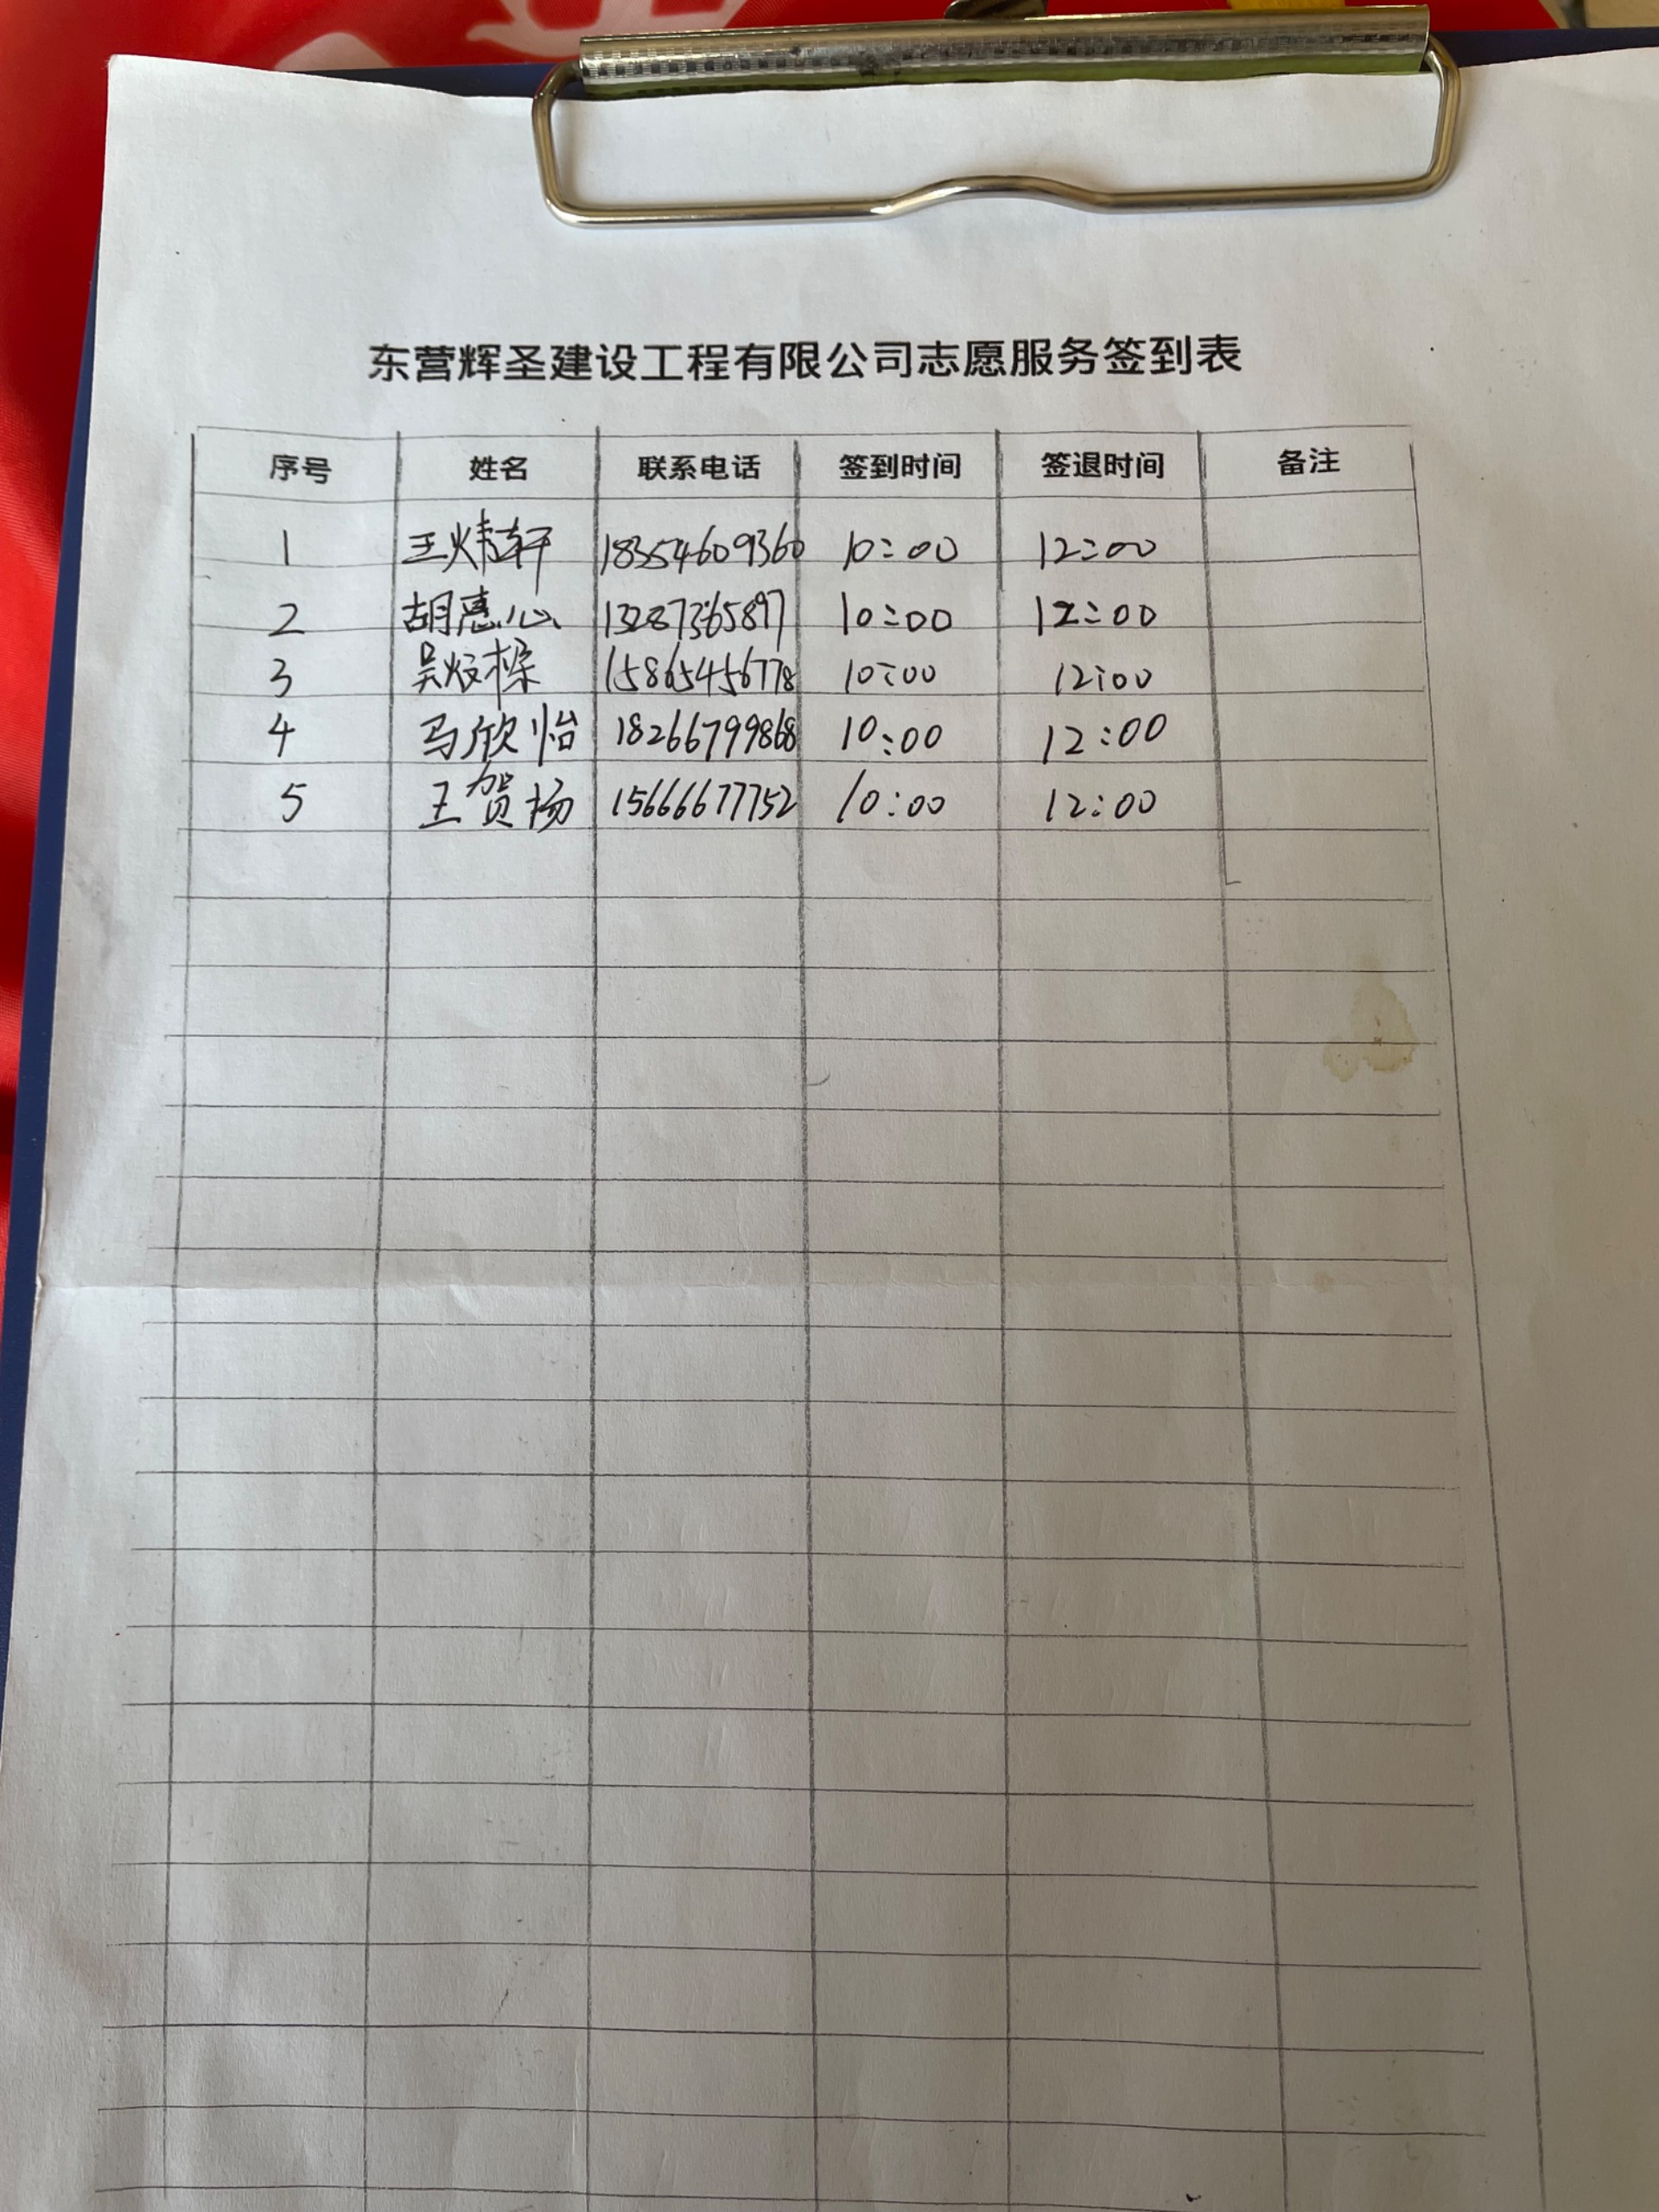 东营辉圣建设工程有限公司志愿服务签到表
序号 姓名 联系电话 签到时间 签退时间 备注
1 王炜轩 18354609360 10:00 12:00
2 胡惠心 13287365897 10:00 12:00
3 吴 15865456778 10:00 12:00
4 马欣怡 18266799868 10:00 12:00
5 王贺杨 15666677752 10:00 12:00